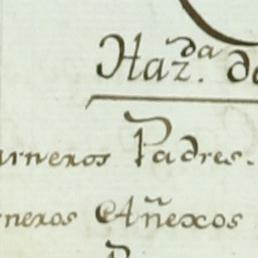 Haz.da de
arneros Padres.
neros Añexos